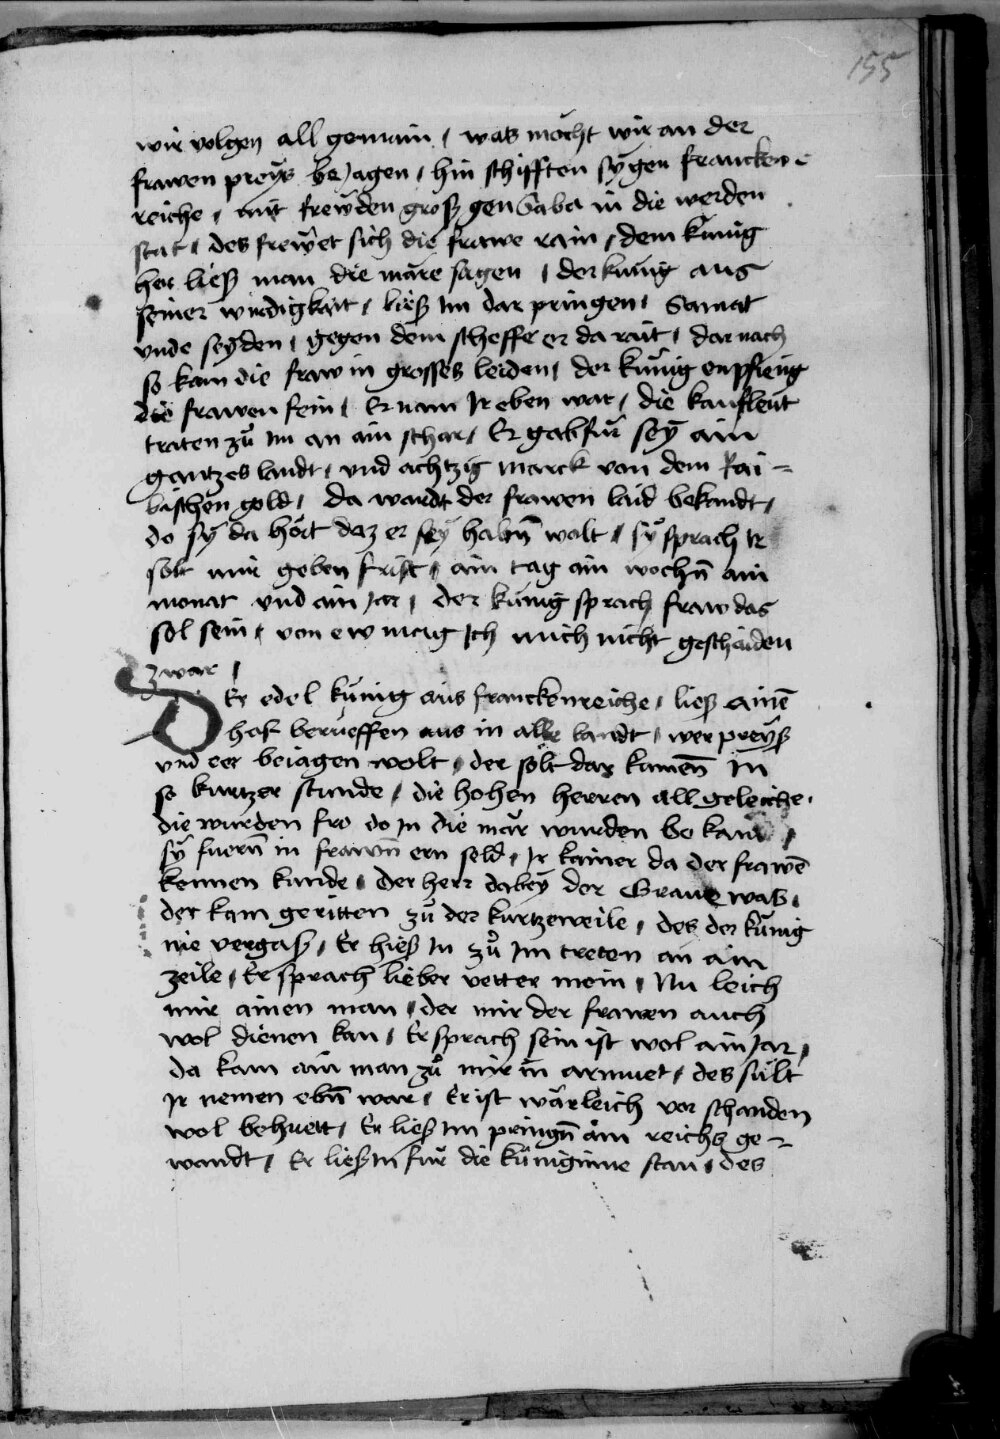 155
wir volgen all gemain / was möcht wir an der
frawen preys bejagen / hin schifften sy gen francken-
reiche / mit frewden gros gen Saba in die werden
stat / des frewet sich die frawe rain / dem künig
her lies man die märe sagen / der künig aus
seiner wirdigkait / lies Im dar pringen / Samat
vnde seyden / gegen dem scheffe er da rait / dar nach
so kam die fraw in grosses leiden / der künig enpfieng
die frawen fein / Er nam Ir eben war / die kaufleut
traten zu Im an ain schar / Er gab für sey ain
gantzes landt / vnd achtzig marck von dem kai-
bischen gold / da wardt der frawen laid bekandt /
do sy da hört daz er sey habn̄ wolt / sy sprach Ir
solt mir geben frist / ain tag ain wochn̄ ain
monat vnd ain Jar / der künig sprach fraw das
sol sein / von ew mag Ich mich nicht geschaiden
zwar /
DEr edel künig aus franckenreiche / lies ainē
hof berueffen aus in alle landt / wer preys
vnd eer beiagen wolt / der solt dar kumen̄ In
so kurtzer stunde / die hohen herren all geleiche /
die wurden fro do In die mär wurden bekant /
sy fuern̄ in frawn̄ ern seld / Ir kainer da der frawē
kennen kunde / der herr dabey der Graue was /
der kam geritten zu der kurtzeweile / des der künig
nie vergas / Er hies In zu Im treten an ain
zeile / Er sprach lieber vetter mein / Nu leich
mir ainen man / der mir der frawen auch
wol dienen kan / Er sprach sein ist wol ain Jar /
da kam ain man zu mir in armuet / des sült
Ir nemen ebn̄ war / Er ist wärleich vor schanden
wol behuett / Er lies Im pringn̄ ain reichs ge-
wandt / Er lies In für die küniginne stan / des